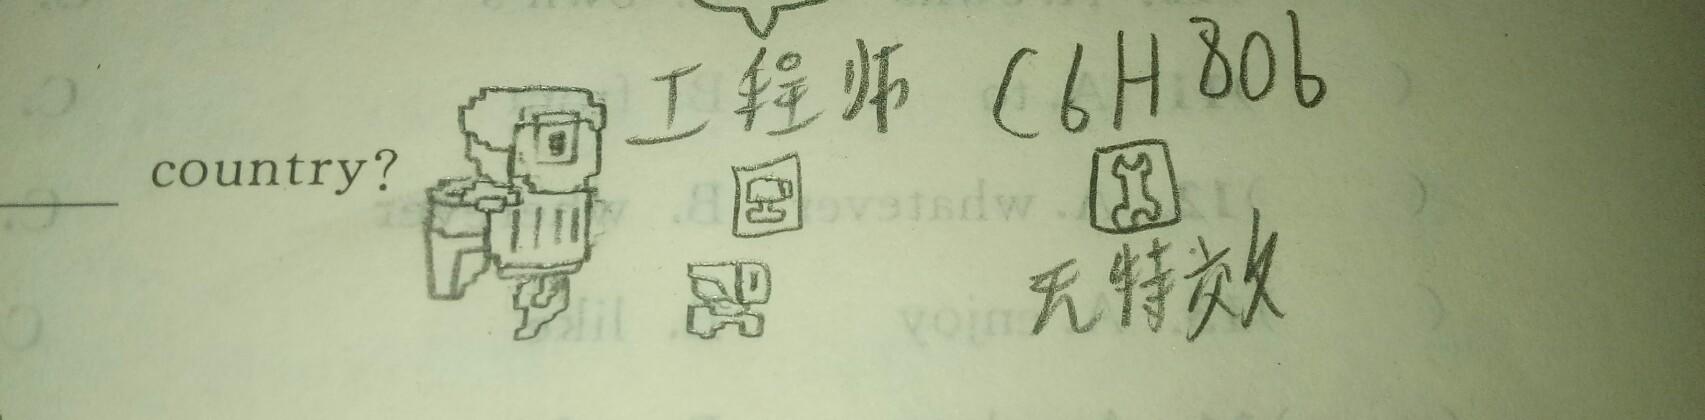 工程师 C6H8O6
country?
无特效